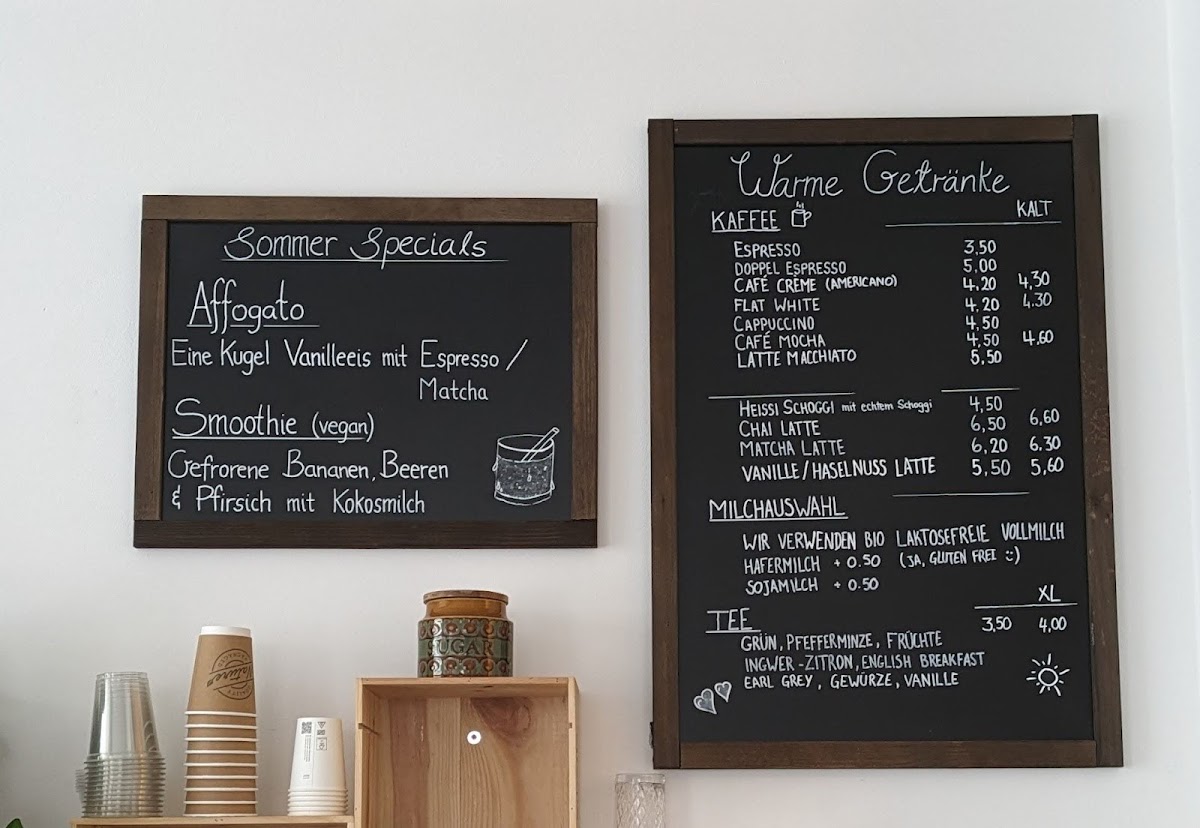 Sommer Specials
Affogato
Eine Kugel Vanilleeis mit Espresso /
Matcha
Smoothie (vegan)
Gefrorene Bananen, Beeren
& Pfirsich mit Kokosmilch
Warme Getränke
KALT
KAFFEE
ESPRESSO 3,50
DOPPEL ESPRESSO 5,00
CAFÉ CRÈME (AMERICANO) 4,20 4,30
FLAT WHITE 4,20 4.30
CAPPUCCINO 4,50
CAFÉ MOCHA 4,50 4.60
LATTE MACCHIATO 5,50
HEISSI SCHOGGI mit echtem Schoggi 4,50
CHAI LATTE 6,50 6,60
MATCHA LATTE 6,20 6.30
VANILLE/HASELNUSS LATTE 5,50 5,60
MILCHAUSWAHL
WIR VERWENDEN BIO LAKTOSEFREIE VOLLMILCH
HAFERMILCH + 0.50 (JA, GLUTEN FREI :)
SOJAMILCH + 0.50
XL
TEE 3,50 4,00
GRÜN, PFEFFERMINZE, FRÜCHTE
INGWER-ZITRON, ENGLISH BREAKFAST
EARL GREY, GEWÜRZE, VANILLE
SUGAR